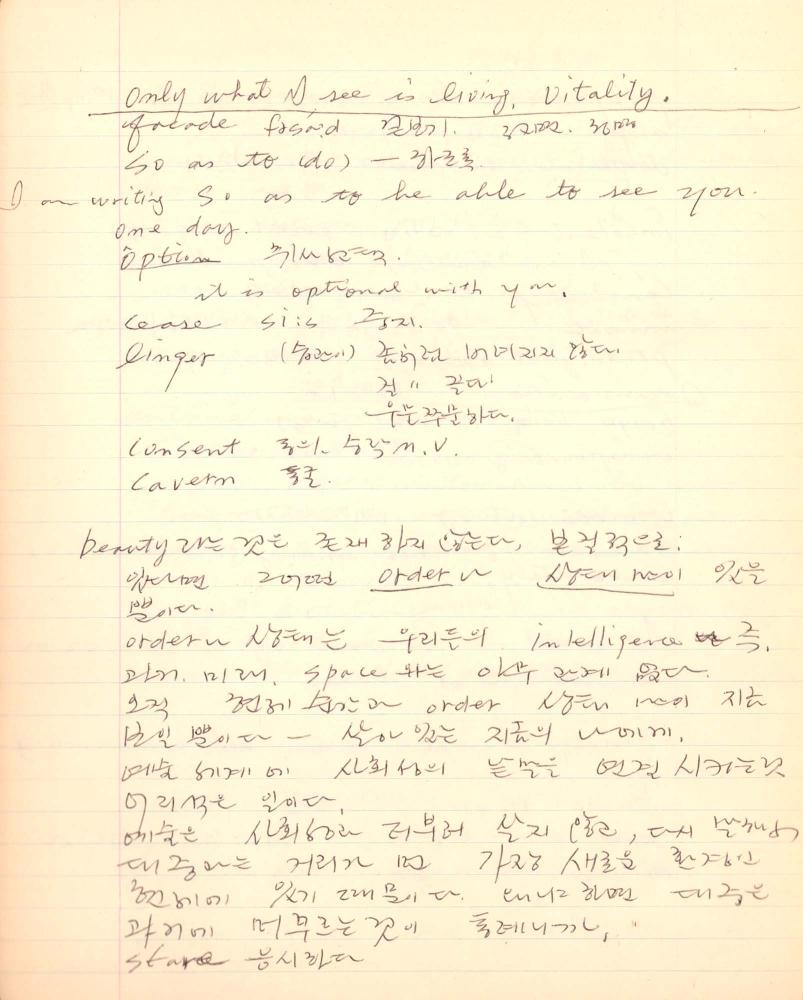 Only what I see is living, Vitality.
facade fəsá:d 겉보기. 정면.
so as to (do) — 하도록.
I am writing so as to be able to see you
one day.
option 취사선택.
it is optional with you.
cease si:s 중지.
linger (습관이) 좀처럼 없어지지 않다
질질 끌다
우물쭈물하다.
consent 동의. 승낙 n.v.
cavern 동굴.
beauty라는 것은 존재하지 않는다, 본질적으로;
있다면 그 어떤 order나 상태 만이 있을
뿐이다.
order나 상태는 우리들의 intelligence 즉,
과거. 미래. space 와는 아무 관계 없다.
오직 현재 순간과 order 상태 만이 지금
보일 뿐이다 — 살아 있는 지금의 나에게.
예술 세계에 사회성의 낱말을 연결 시키는 것
어리석은 일이다.
예술은 사회성과 더부러 살지 않고, 다시 말해서,
대중과는 거리가 먼 가장 새로운 환경인
현재에 있기 때문이다. 왜냐고 하면 대중은
과거에 머무르는 것이 통례니까,
stare 응시하다